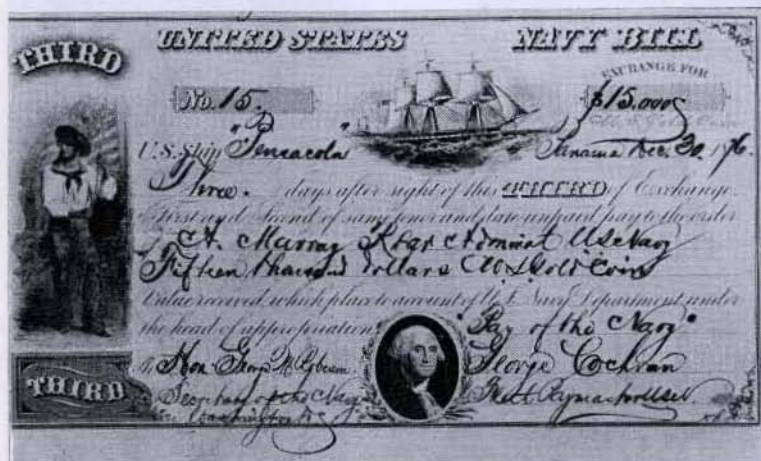 THIRD
UNITED STATES NAVY BILL
No. 15.
EXCHANGE FOR
$15,000
U.S. Ship "Pensacola" Panama Dec. 30. 1876.
Three. days after sight of this THIRD of Exchange.
First and Second of same tenor and date unpaid pay to the order
of A. Murray Rear Admiral U.S. Navy
Fifteen thousand dollars U.S. Gold Coin
Value received, which place to account of U.S. Navy Department under
the head of appropriation "Pay of the Navy"
To Hon. George M. Robeson George Cochran
Secretary of the Navy Fleet Paymaster U.S.N.
Washington D.C.
THIRD